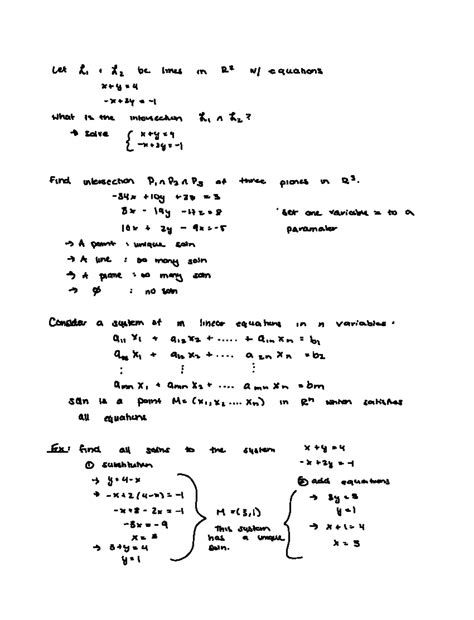 Let L₁ & L₂ be lines in R² w/ equations
x+y=4
-x+2y=-1
What is the intersection L₁ ∩ L₂?
→ solve { x+y=4
-x+2y=-1
Find intersection P₁∩P₂∩P₃ of three planes in R³.
-34x +10y +2z = 3
8x - 19y -17z = 8
* set one variable = to a
10x + 2y - 9z = -5
parameter
→ A point : unique soln
→ A line : ∞ many soln
→ A plane : ∞ many soln
→ ∅ : no soln
Consider a system of m linear equations in n variables.
a₁₁ x₁ + a₁₂ x₂ + ..... + a₁ₙ xₙ = b₁
x₁ + x₂ + .... a₂ₙ xₙ = b₂
⋮ ⋮ ⋮
x₁ + x₂ + .... aₘₙ xₙ = bm
soln is a point M=(x₁, x₂ .... xₙ) in Rⁿ which satisfies
all equations
Ex: find all solns to the system x+y=4
-x+2y=-1
① substitution
② add equations
→ y=4-x
→ 3y=3
→ -x+2(4-x)=-1
y=1
-x+8-2x=-1
M=(3,1)
-3x=-9
This system
→ x+1=4
x=3
has a unique
x=3
→ 3+y=4
soln.
y=1